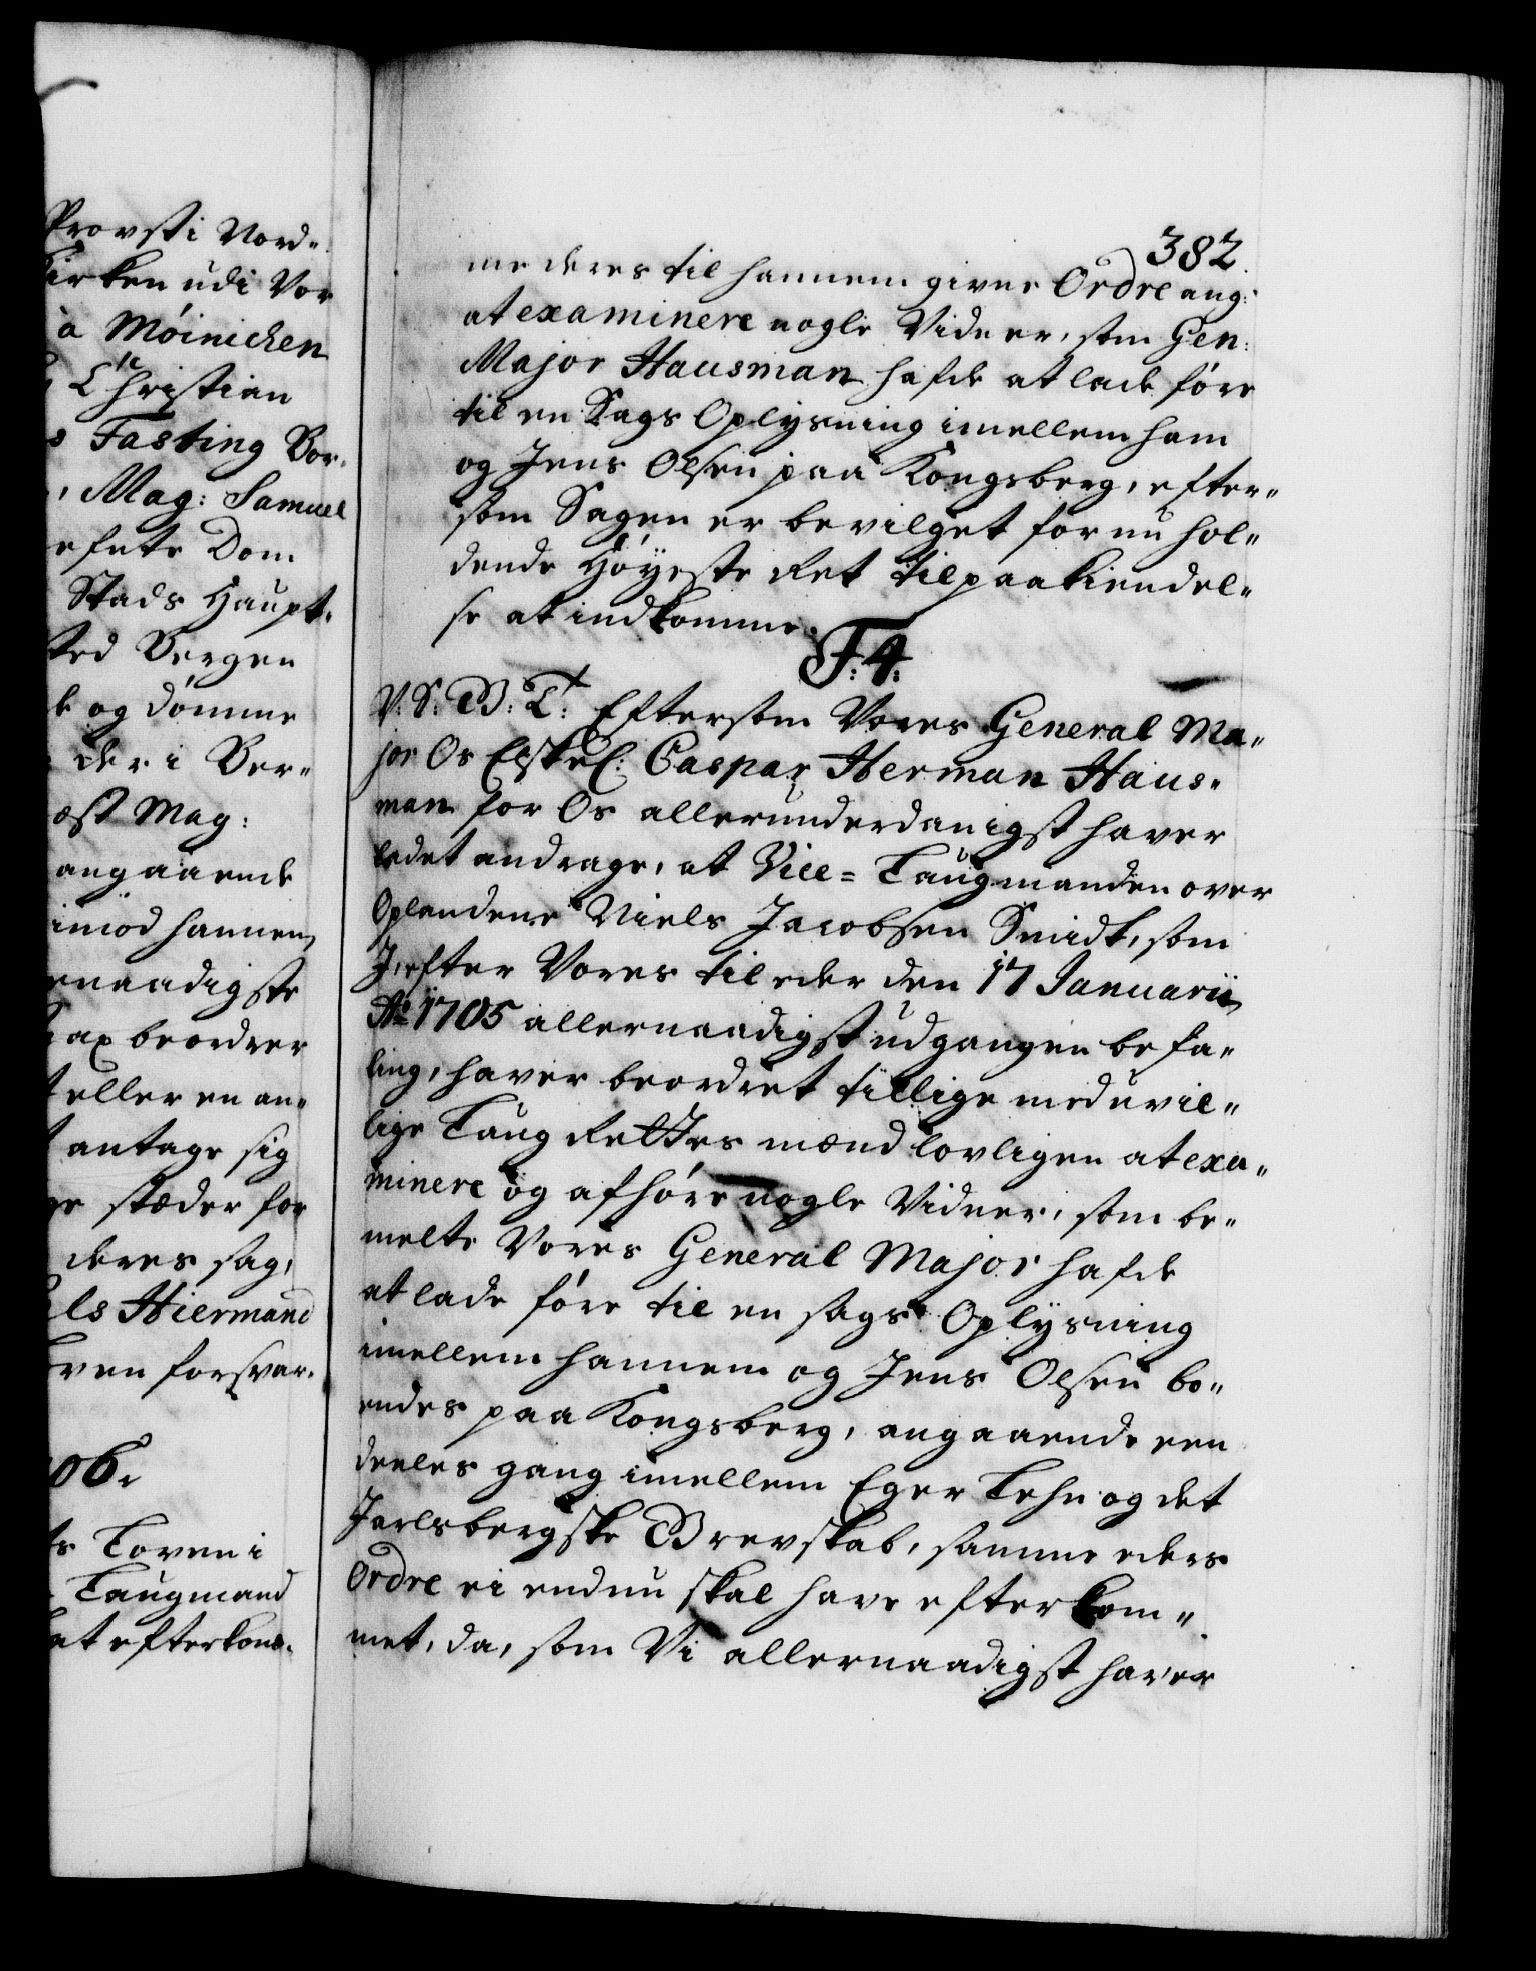 Provst i Nord-
Kirken udi Vor
a Möinichen
Christian
Fasting Bor-
, Mag: Samuel
Dom
Stads Haupt-
sted Bergen
og dömme
der i Ber-
Mag:
angaaende
imod hannem
naadigste
beordrer
eller en an-
antage sig
stæder for
deres sag,
ls Hiermand
forsvar-
06.
Loven i
Laugmand
at efterkom-
382.
me deres til hannem givne Ordre ang:
at examinere nogle Vidner, som Gen:
Major Hausman hafde at lade före
til en Sags Oplysning imellem ham
og Jens Olsen paa Kongsberg, efter-
som Sagen er bevilget for nu hol-
dende Höyeste Ret til paakiendel-
se at indkomme.
F: 4:
V: S: G: T: Eftersom Vores General Ma-
jor Os Elskel: Caspar Herman Haus-
man for Os allerunderdanigst haver
ladet andrage, at Vice-Laugmanden over
Oplandene Niels Jacobsen Smidt, som
I, efter Vores til eder den 17 Januarii
Ao 1705 allernaadigst udgangen befa-
ling, haver beordret tillige med uvil-
lige Laug Rettes mænd lovligen at exa-
minere og afhöre nogle Vidner, som be-
melte Vores General Major hafde
at lade före til en sags Oplysning
imellem hannem og Jens Olsen bo-
endes paa Kongsberg, angaaende een
deeles gang imellem Eger Lehn og det
Jarlsbergske Grevskab, samme eders
Ordre ei endnu skal have efterkom-
met, da, som Vi allernaadigst haver